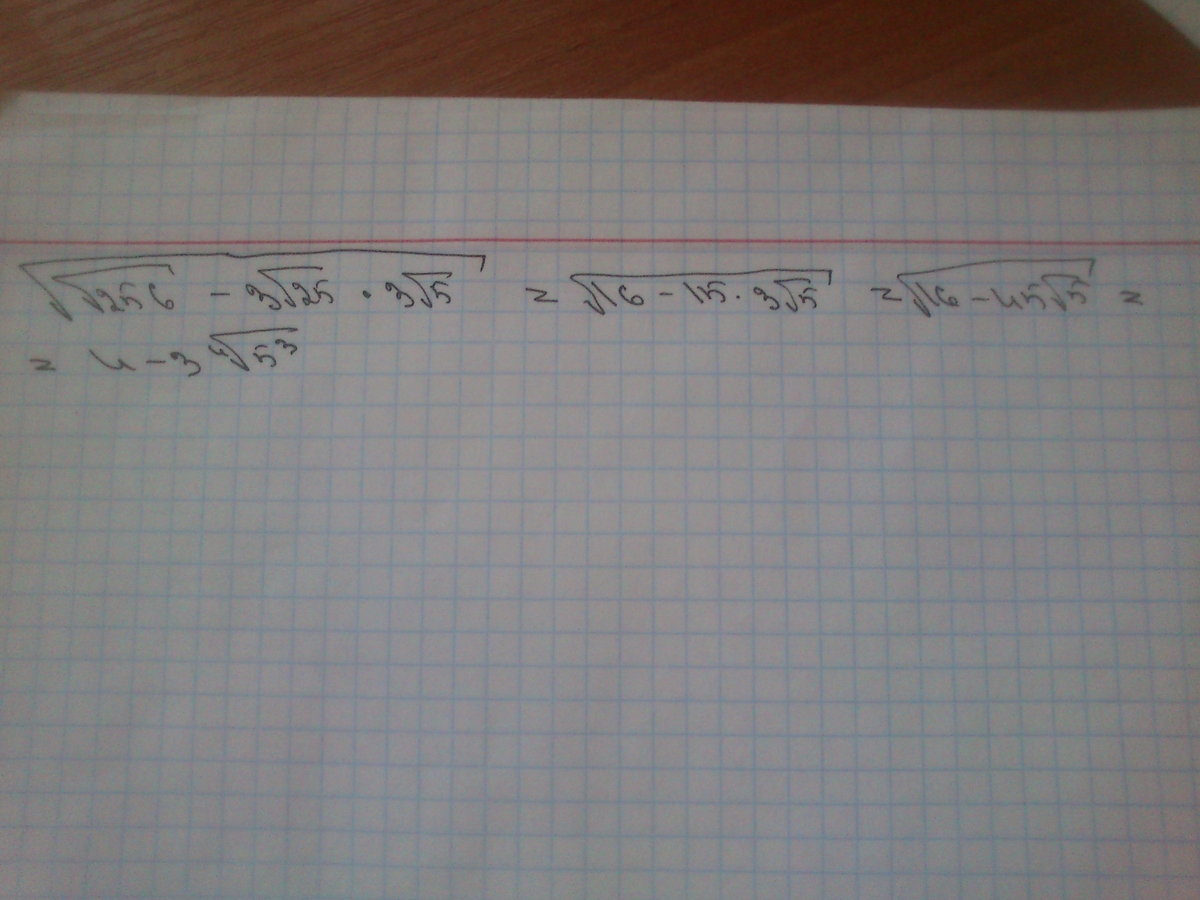 √(√256 - 3√25 · 3√5) = √(16 - 15 · 3√5) = √(16 - 45√5) =
= 4 - 3 ∜(5³)